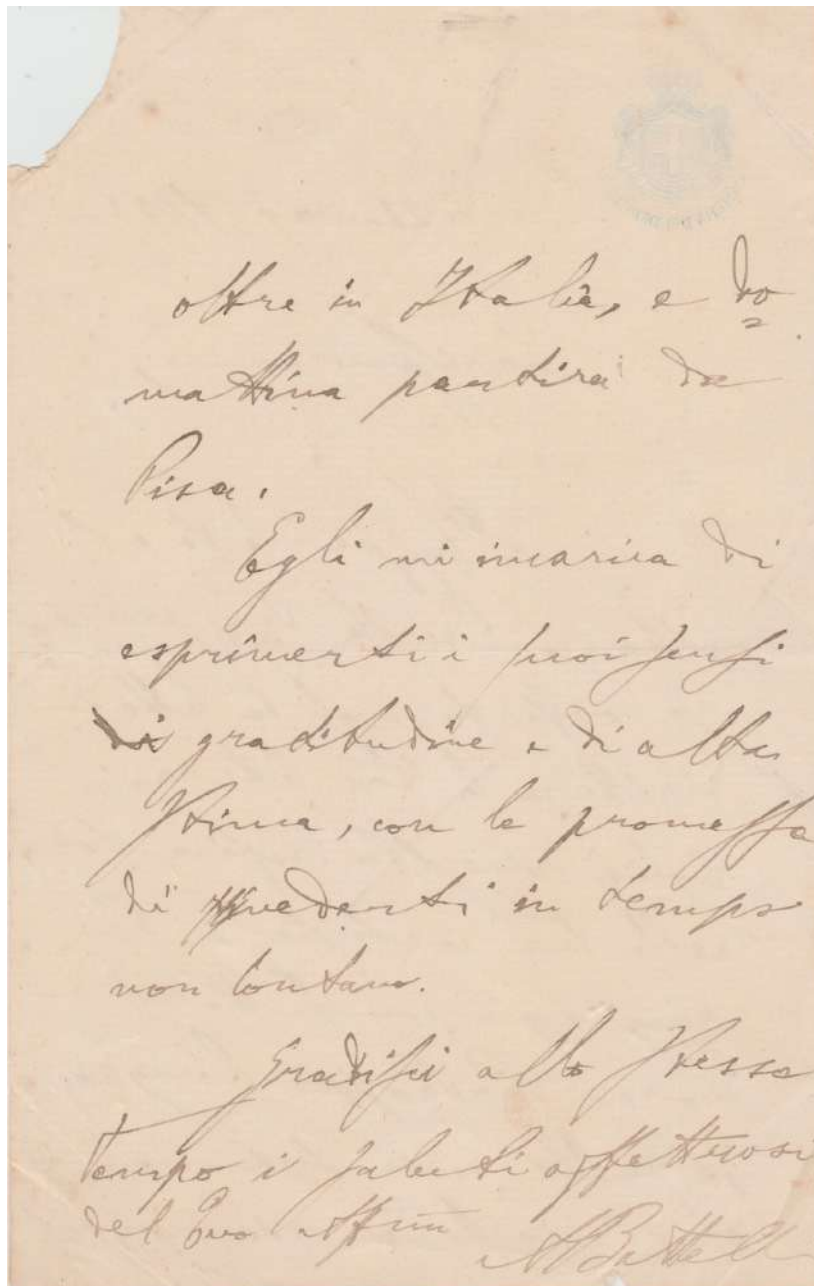 oltre in Italia, e do
mattina partirà da
Pisa.
Egli mi incarica di
esprimerti i suoi sensi
di gratitudine e di alta
stima, con la promessa
di rivederti in tempo
non lontano.
Gradisci allo stesso
tempo i saluti affettuosi
del tuo aff.mo
ABattelli